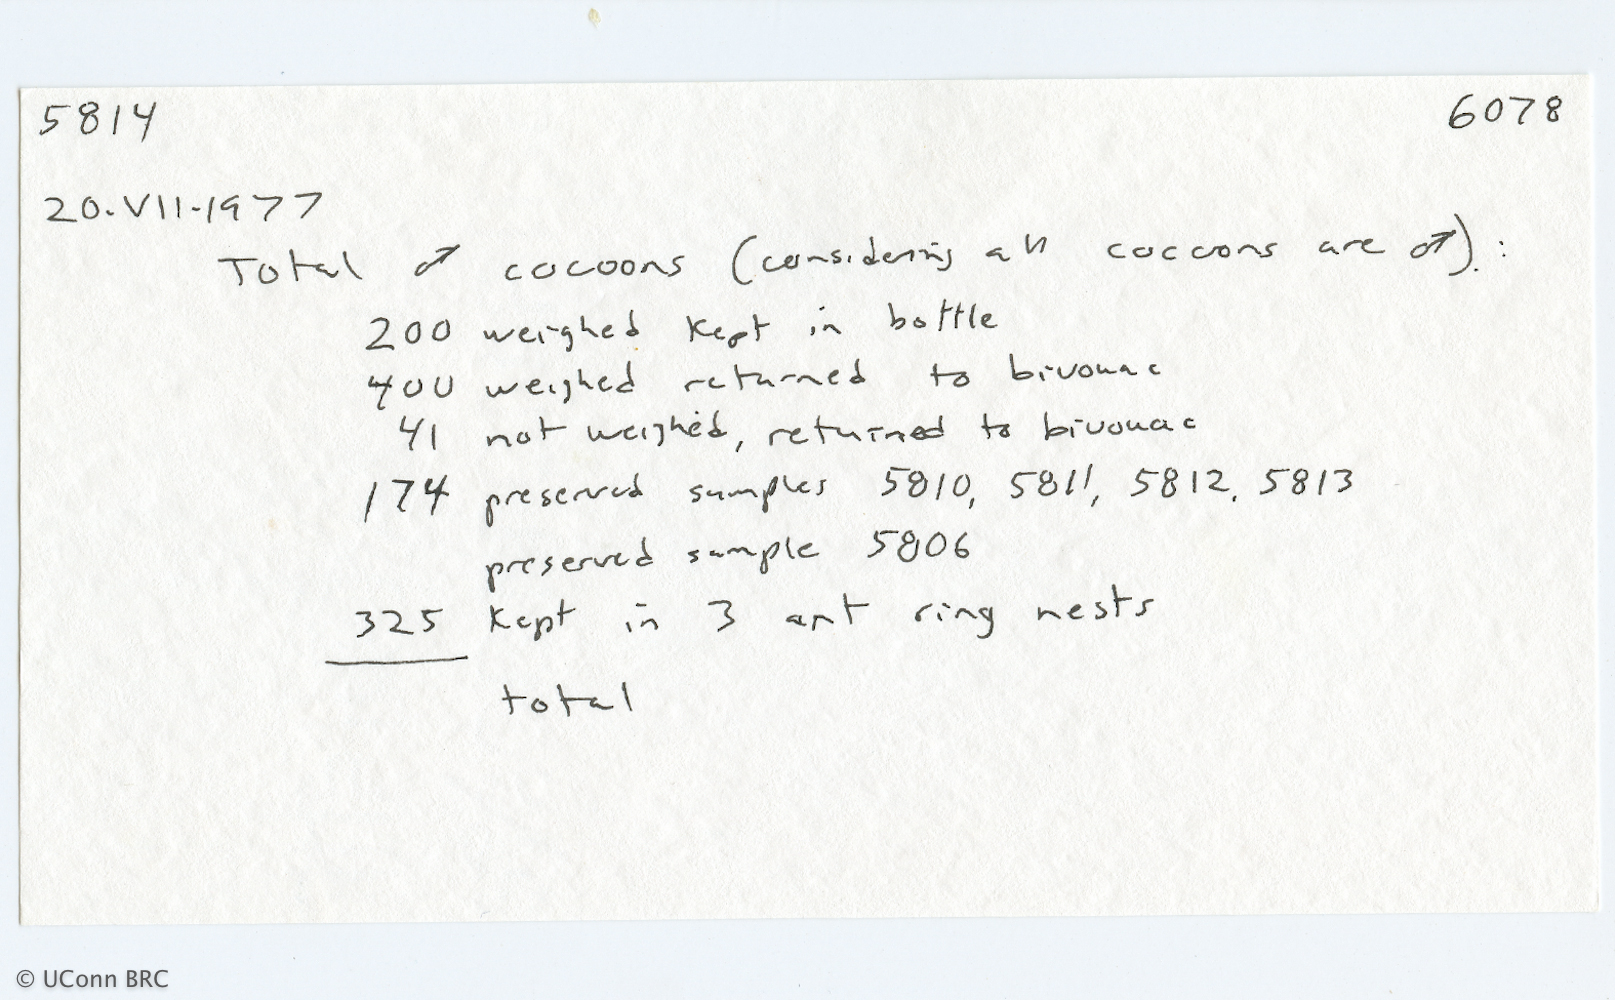 5814 6078
20.VII.1977
Total ♂ cocoons (considering all cocoons are ♂).:
200 weighed kept in bottle
400 weighed returned to bivouac
41 not weighed, returned to bivouac
174 preserved samples 5810, 5811, 5812, 5813
preserved sample 5806
325 Kept in 3 ant ring nests
total
© UConn BRC